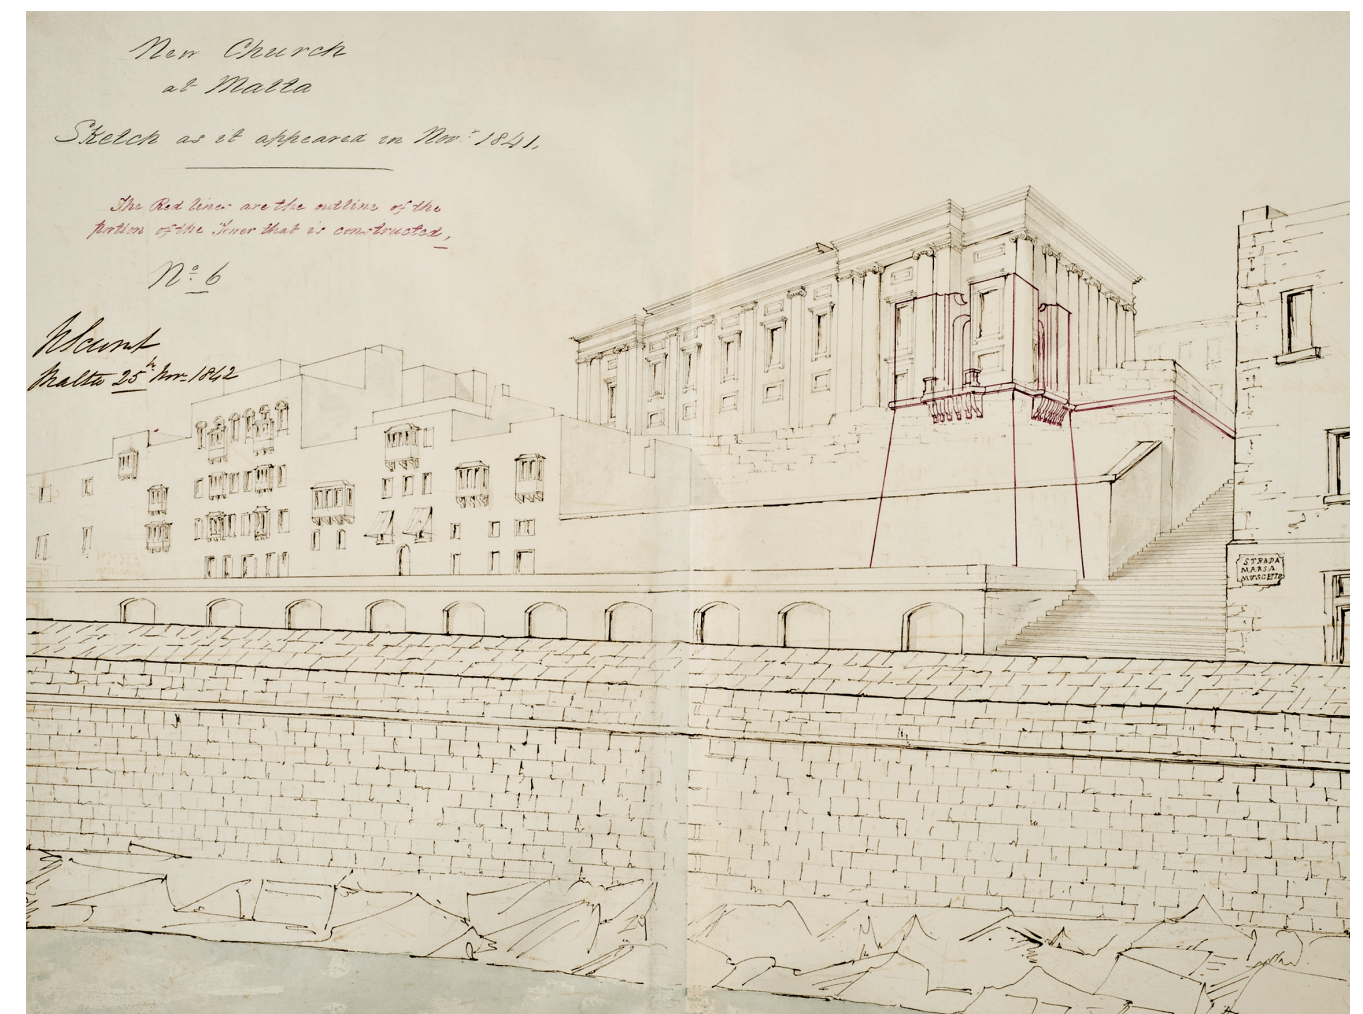 New Church
at Malta
Sketch as it appeared in Novr 1841.
The Red lines are the outline of the
portion of the Tower that is constructed,
No. 6
Malta 25th Nov. 1842
STRADA
MARSA
MUSCETTO